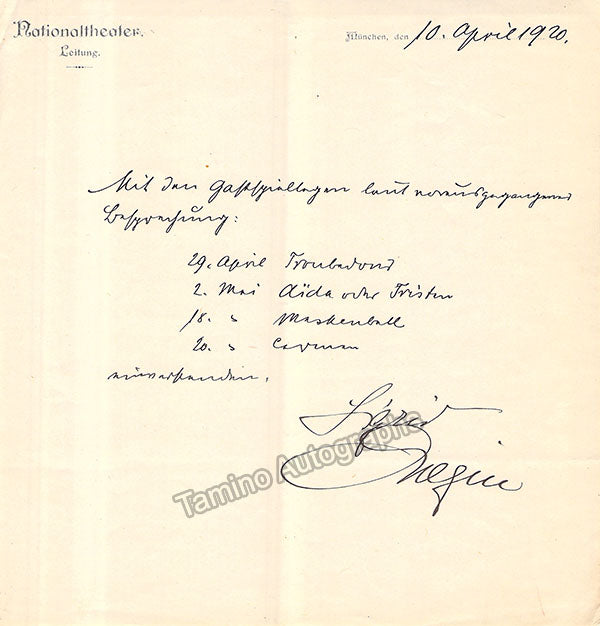 Nationaltheater.
Leitung.
München, den 10. April 1920.
Mit den Gastspieltagen laut vorausgegangener
Besprechung:
29. April Troubadour
2. Mai Aïda oder Tristan
18. " Maskenball
20. " Carmen
einverstanden.
Sigrid
Onegin
Tamino Autographs